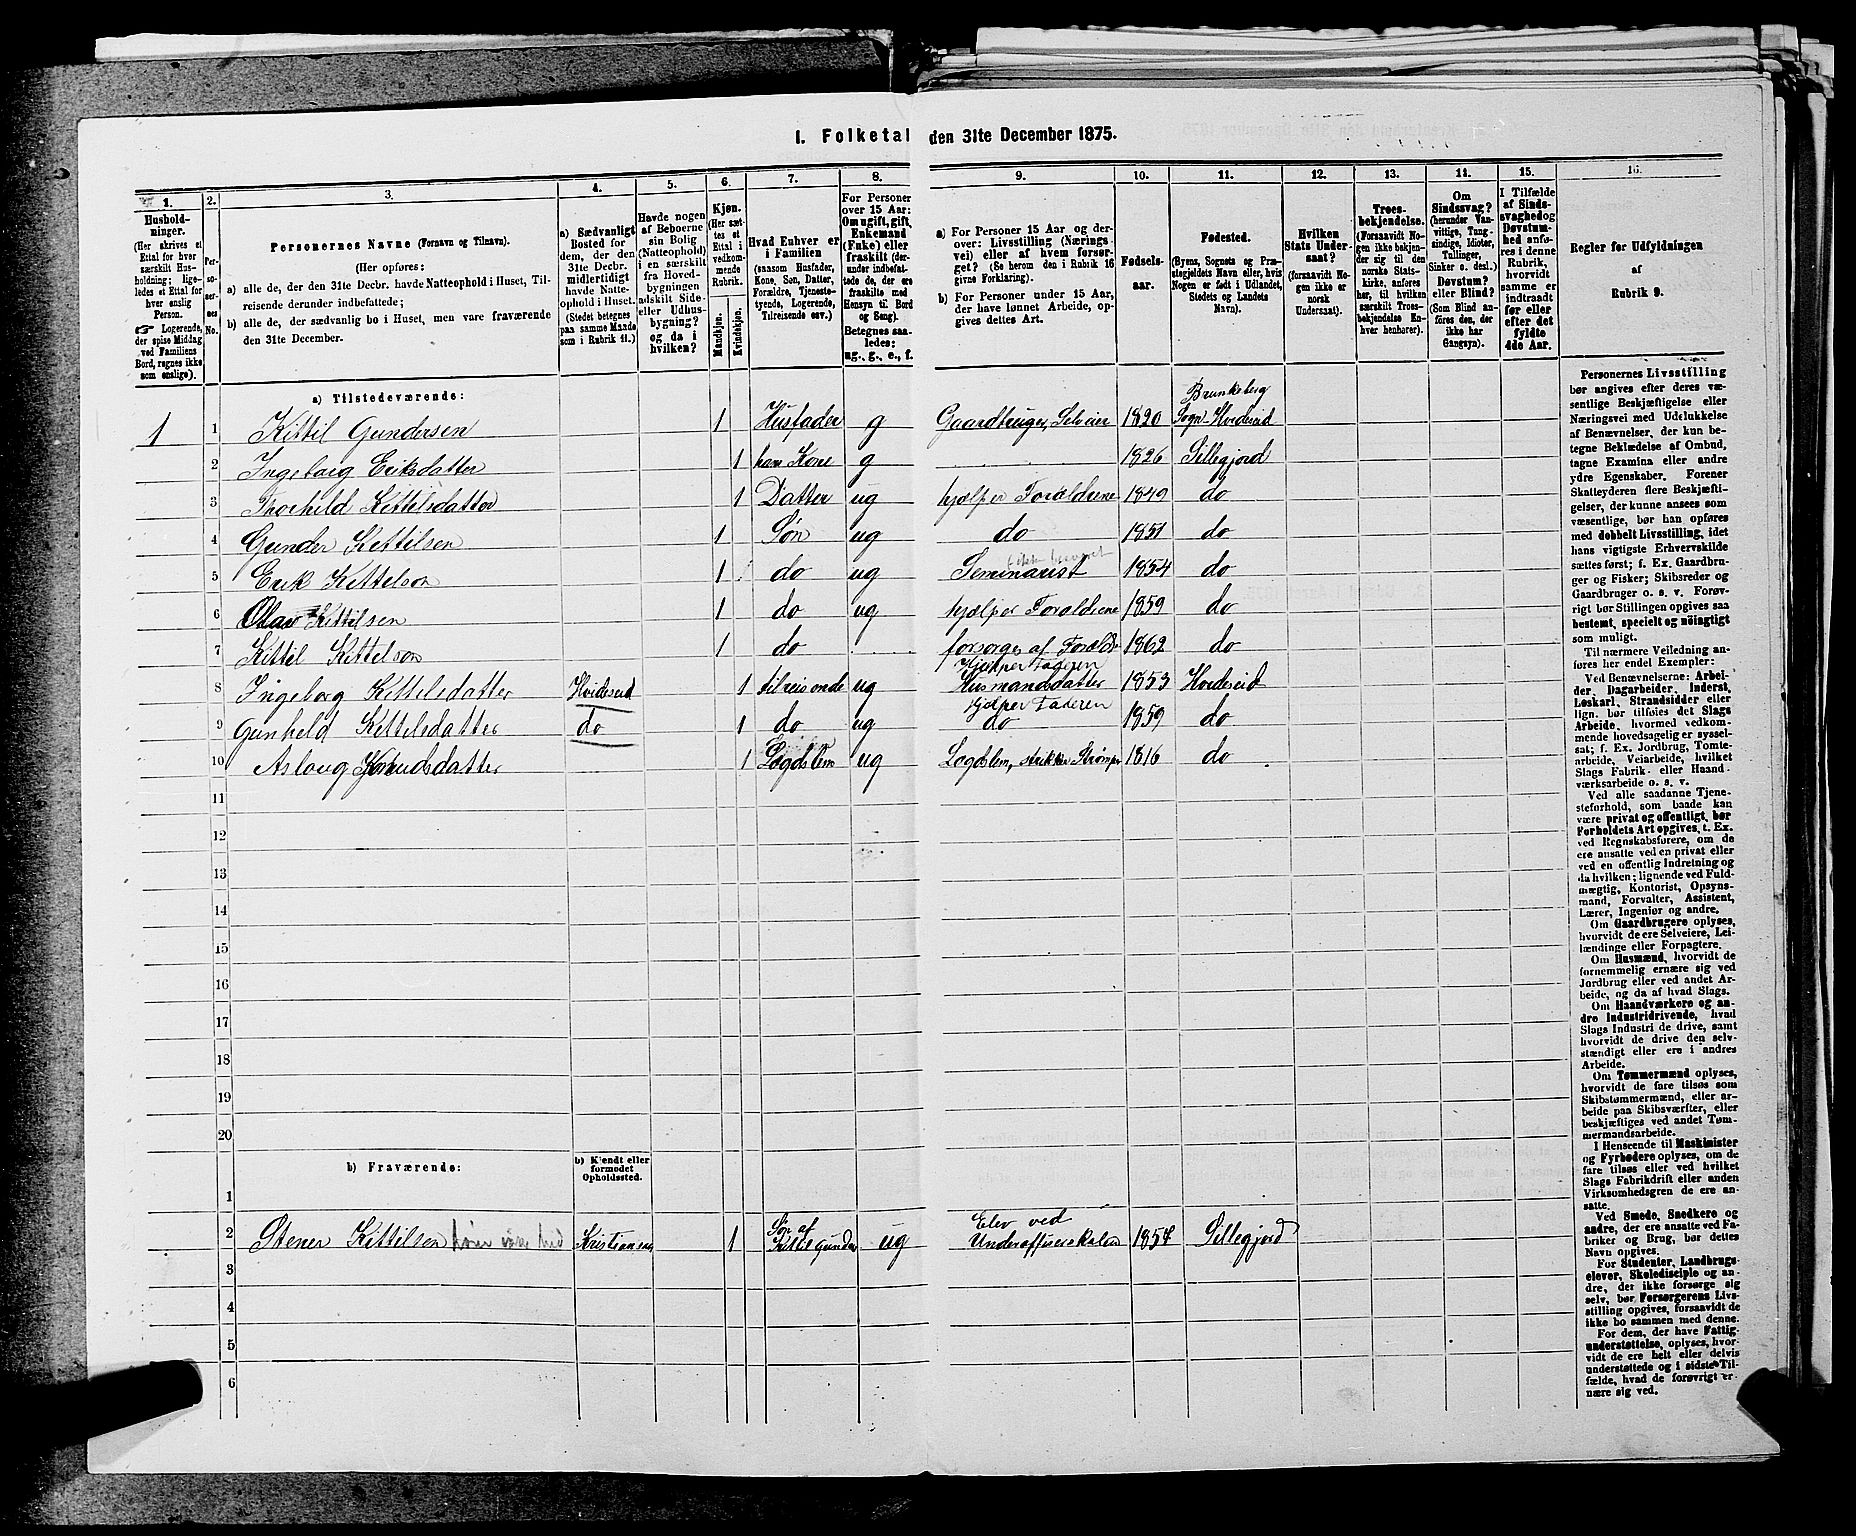 1. Folketal den 31te December 1875.
1.
2.
3.
4.
5.
6.
7.
8.
9.
10.
11.
12.
13.
14.
15.
16.
Hushold-
ninger.
(Her skrives et
Ettal for hver
særskilt Hus-
holdning; lige-
ledes et Ettal for
hver enslig
Person.
☞ Logerende,
der spise Middag
ved Familiens
Bord, regnes ikke
som enslige).
Per-
so-
ner-
nes
No.
Personernes Navne (Fornavn og Tilnavn).
(Her opføres:
a) alle de, der den 31te Decbr. havde Natteophold i Huset, Til-
reisende derunder indbefattede;
b) alle de, der sædvanlig bo i Huset, men vare fraværende
den 31te December.
a) Sædvanligt
Bosted for
dem, der den
31te Decbr.
midlertidigt
havde Natte-
ophold i Huset.
(Stedet betegnes
paa samme Maade
som i Rubrik 11.)
Havde nogen
af Beboerne
sin Bolig
(Natteophold)
i en særskilt
fra Hoved-
bygningen
adskilt Side-
eller Udhus-
bygning?
og da i
hvilken?
Kjøn.
(Her sæt-
tes et
Ettal i
vedkom-
mende
Rubrik.
Mandkjøn.
Kvindekjøn.
Hvad Enhver er
i Familien
(saasom Husfader,
Kone, Søn, Datter,
Forældre, Tjeneste-
tyende, Logerende,
Tilreisende osv.)
For Personer
over 15 Aar:
Om ugift, gift,
Enkemand
(Enke) eller
fraskilt (der-
under indbefat-
tede de, der ere
fraskilte med
Hensyn til Bord
og Seng).
Betegnes saa-
ledes:
ug., g., e., f.
a) For Personer 15 Aar og der-
over: Livsstilling (Nærings-
vei) eller af hvem forsør-
get? (Se herom den i Rubrik 16
givne Forklaring).
b) For Personer under 15 Aar,
der have lønnet Arbeide, op-
gives dettes Art.
Fødsels-
aar.
Fødested.
(Byens, Sognets og Præ-
stegjeldets Navn eller, hvis
Nogen er født i Udlandet,
Stedets og Landets
Navn).
Hvilken
Stats Under-
saat?
(forsaavidt No-
gen ikke er
norsk
Undersaat).
Troes-
bekjendelse.
(Forsaavidt No-
gen ikke bekjen-
der sig til den
norske Stats-
kirke, anføres
her, til hvilken
særskilt Troes-
bekjendelse En-
hver henhører).
Om
Sindssvag?
(herunder Van-
vittige, Tung-
sindige, Idioter,
Tullinger,
Sinker o. desl.)
Døvstum?
eller Blind?
(Som Blind an-
føres den, der
ikke har
Gangsyn).
I Tilfælde
af Sinds-
svaghed og
Døvstum-
hed anfø-
res i denne
Rubrik,
hvorvidt
samme er
indtraadt
før eller
efter det
fyldte
4de Aar.
Regler for Udfyldningen
af
Rubrik 9.
a) Tilstedeværende:
1 1 Kittil Gundersen 1 Husfader g Gaardbruger, Selveier 1820 Brunkeberg
Sogn Hvideseid
2 Ingeborg Eriksdatter 1 hans Kone g 1826 Sillegjord
3 Thorhild Kittilsdatter 1 Datter ug hjælper Forældrene 1849 do
4 Gunder Kittilsen 1 Søn ug do 1851 do
5 Erik Kittelson 1 do ug Seminarist 1854 do
6 Olav Kittilsen 1 do ug hjælper Forældrene 1859 do
7 Kittil Kittelson 1 do forsorges af Forælde 1862 do
Hjælper Faderen
8 Ingeborg Kittelsdatter Hvideseid 1 tilreisende ug Husmandsdatter 1853 Hvideseid
hjelper Faderen
9 Gunheld Kittelsdatter do 1 do ug do 1859 do
10 Aslaug Knudsdatter 1 Lægdslem ug Lægdslem, strikker Strømper 1816 do
11
12
13
14
15
16
17
18
19
20
b) Fraværende:
b) Kjendt eller
formodet
Opholdssted.
1
2 Stener Kittilsen Kristiansand 1 Søn af
Kittil Gunders ug Elev ved
Underofficerskolen 1857 Sillegjord
3
4
5
6
Personernes Livsstilling
bør angives efter deres væ-
sentlige Beskjæftigelse eller
Næringsvei med Udelukkelse
af Benævnelser, der kun be-
tegne Beklædelse af Ombud,
tagne Examina eller andre
ydre Egenskaber. Forener
Skatteyderen flere Beskjæfti-
gelser, der kunne ansees som
væsentlige, bør han opføres
med dobbelt Livsstilling, idet
hans vigtigste Erhvervskilde
sættes først; f. Ex. Gaardbru-
ger og Fisker; Skibsreder og
Gaardbruger o. s. v. Forøv-
rigt bør Stillingen opgives saa
bestemt, specielt og nöiagtigt
som muligt.
Til nærmere Veiledning an-
føres her endel Exempler:
Ved Benævnelserne: Arbei-
der, Dagarbeider, Inderst,
Løskarl, Strandsidder eller
lign. bør tilføies det Slags
Arbeide, hvormed vedkom-
mende hovedsagelig er syssel-
sat; f. Ex. Jordbrug, Tomte-
arbeide, Veiarbeide, hvilket
Slags Fabrik- eller Haand-
værksarbeide o. s. v.
Ved alle saadanne Tjene-
steforhold, som baade kan
være privat og offentligt, bør
Forholdets Art opgives, t. Ex.
ved Regnskabsførere, om de
ere ansatte ved en privat eller
ved en offentlig Indretning og
da hvilken; lignende ved Fuld-
mægtig, Kontorist, Opsyns-
mand, Forvalter, Assistent,
Lærer, Ingeniør og andre.
Om Gaardbrugere oplyses,
hvorvidt de ere Selveiere, Lei-
lændinge eller Forpagtere.
Om Husmænd, hvorvidt de
fornemmelig ernære sig ved
Jordbrug eller ved andet Ar-
beide, og da af hvad Slags.
Om Haandværkere og an-
dre Industridrivende, hvad
Slags Industri de drive, samt
hvorvidt de drive den selv-
stændigt eller ere i andres
Arbeide.
Om Tømmermænd oplyses,
hvorvidt de fare tilsøs som
Skibstømmermænd, eller ar-
beide paa Skibsværfter, eller
beskjæftiges ved andet Tøm-
mermandsarbeide.
I Henseende til Maskinister
og Fyrbødere oplyses, om de
fare tilsøs eller ved hvilket
Slags Fabrikdrift eller anden
Virksomhedsgren de ere an-
satte.
Ved Smede, Snedkere og
andre, der ere ansatte ved Fa-
briker og Brug, bør dettes
Navn opgives.
For Studenter, Landbrugs-
elever, Skoledisciple og an-
dre, der ikke forsørge sig
selv, bør Forsørgerens Livs-
stilling opgives, forsaavidt de
ikke bo sammen med denne.
For dem, der have Fattig-
understøttelse, oplyses, hvor-
vidt de ere helt eller delvis
understøttede og i sidste Til-
fælde, hvad de forøvrigt er-
nære sig ved.